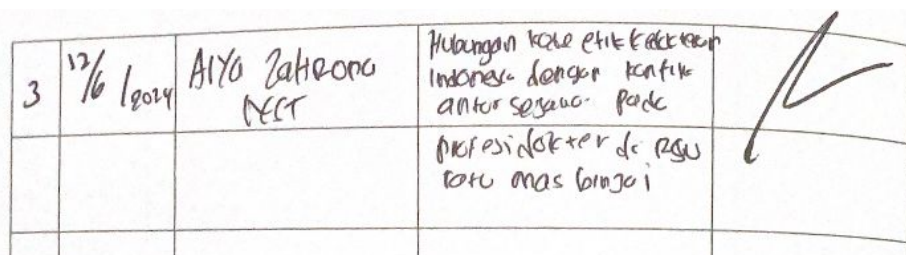 3
12/6/2024
Alya Zahrona
Hubungan kode etik kedokteran
Indonesia dengan konflik
antar sejawat pada
profesi dokter di RSU
mas binjai